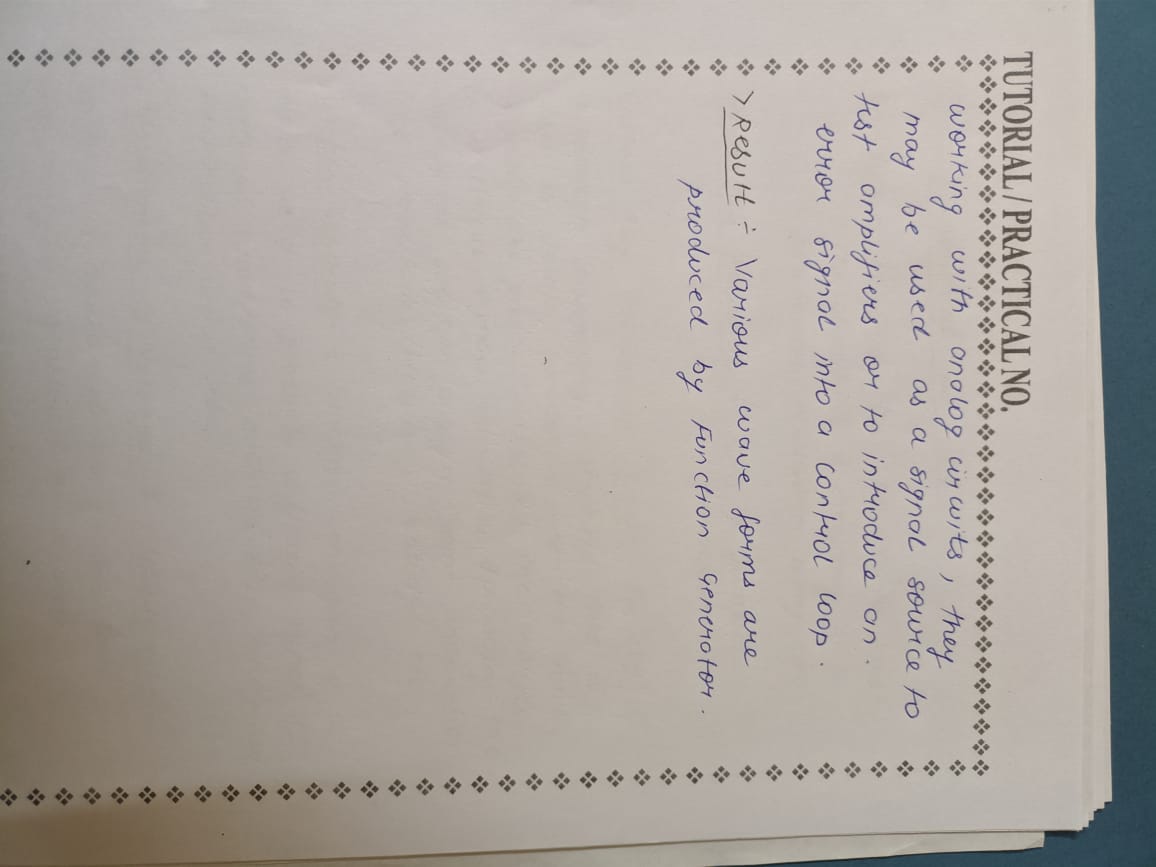 TUTORIAL / PRACTICAL NO.
working with analog circuits, they
may be used as a signal source to
test amplifiers or to introduce an.
error signal into a control loop.
> Result ÷ Various wave forms are
produced by Function generator.